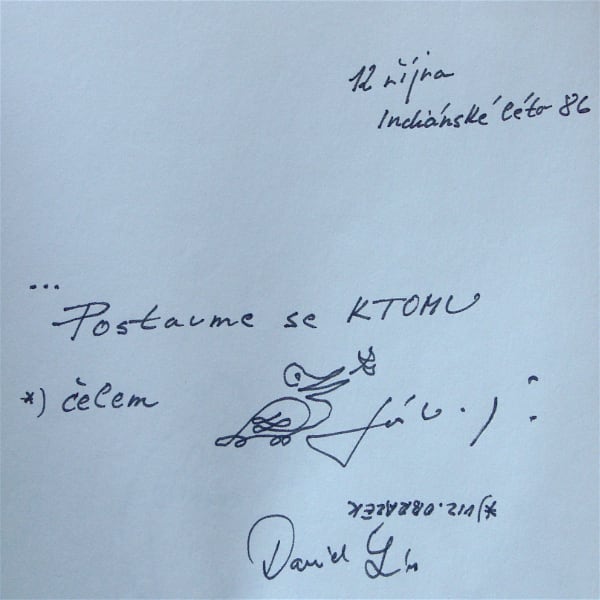 12 října
Indiánské léto 86
...
Postavme se KTOMU
*) čelem
*) VIZ. OBRÁZEK
David